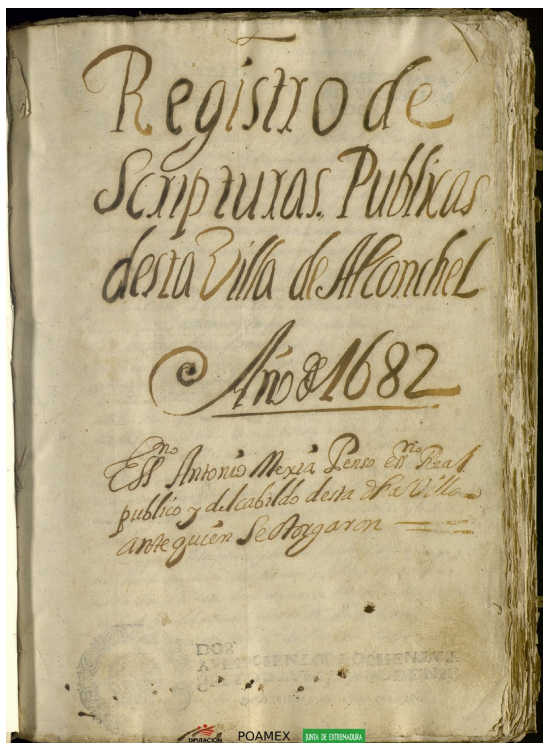 Registro de
Scripturas. Publicas
desta Villa de Alconchel
Año de 1682
Essno Antonio Mexia Penso essrio Real
publico y del cabildo desta dha Villa
ante quien Se otorgaron
DIPUTACIÓN POAMEX JUNTA DE EXTREMADURA